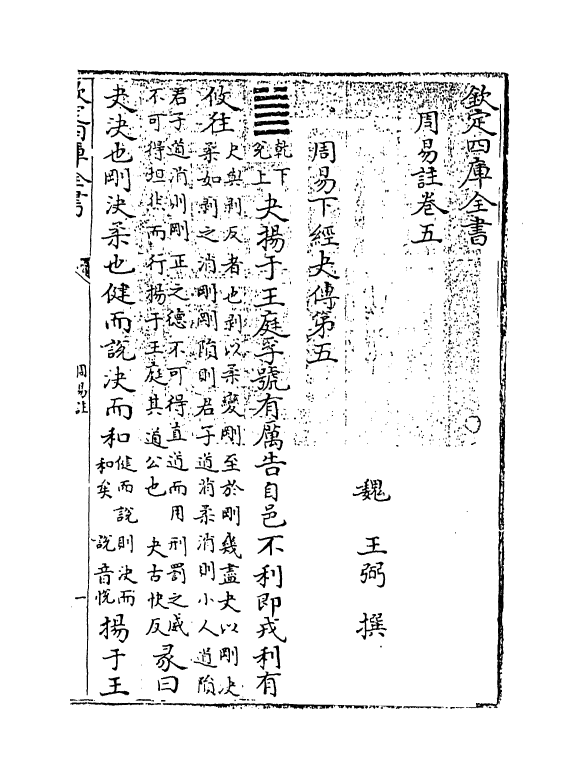 欽定四庫全書
周易註卷五
魏 王弼 撰
周易下經夬傳第五
乾下
兌上
夬揚于王庭孚號有厲告自邑不利即戎利有
攸往
夬與剥反者也剥以柔變剛至於剛幾盡夬以剛决
柔如剥之消剛剛隕則君子道消柔消則小人道隕
君子道消則剛正之德不可得直道而用刑罰之威
不可得坦然而行揚于王庭其道公也 夬古快反
彖曰
夬决也剛決柔也健而說决而和
健而說則決而
和矣 說音恱
揚于王
欽定四庫全書
周易註
一